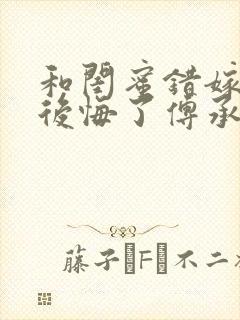 和閨蜜錯嫁
後悔了傅承
藤子·F·不二